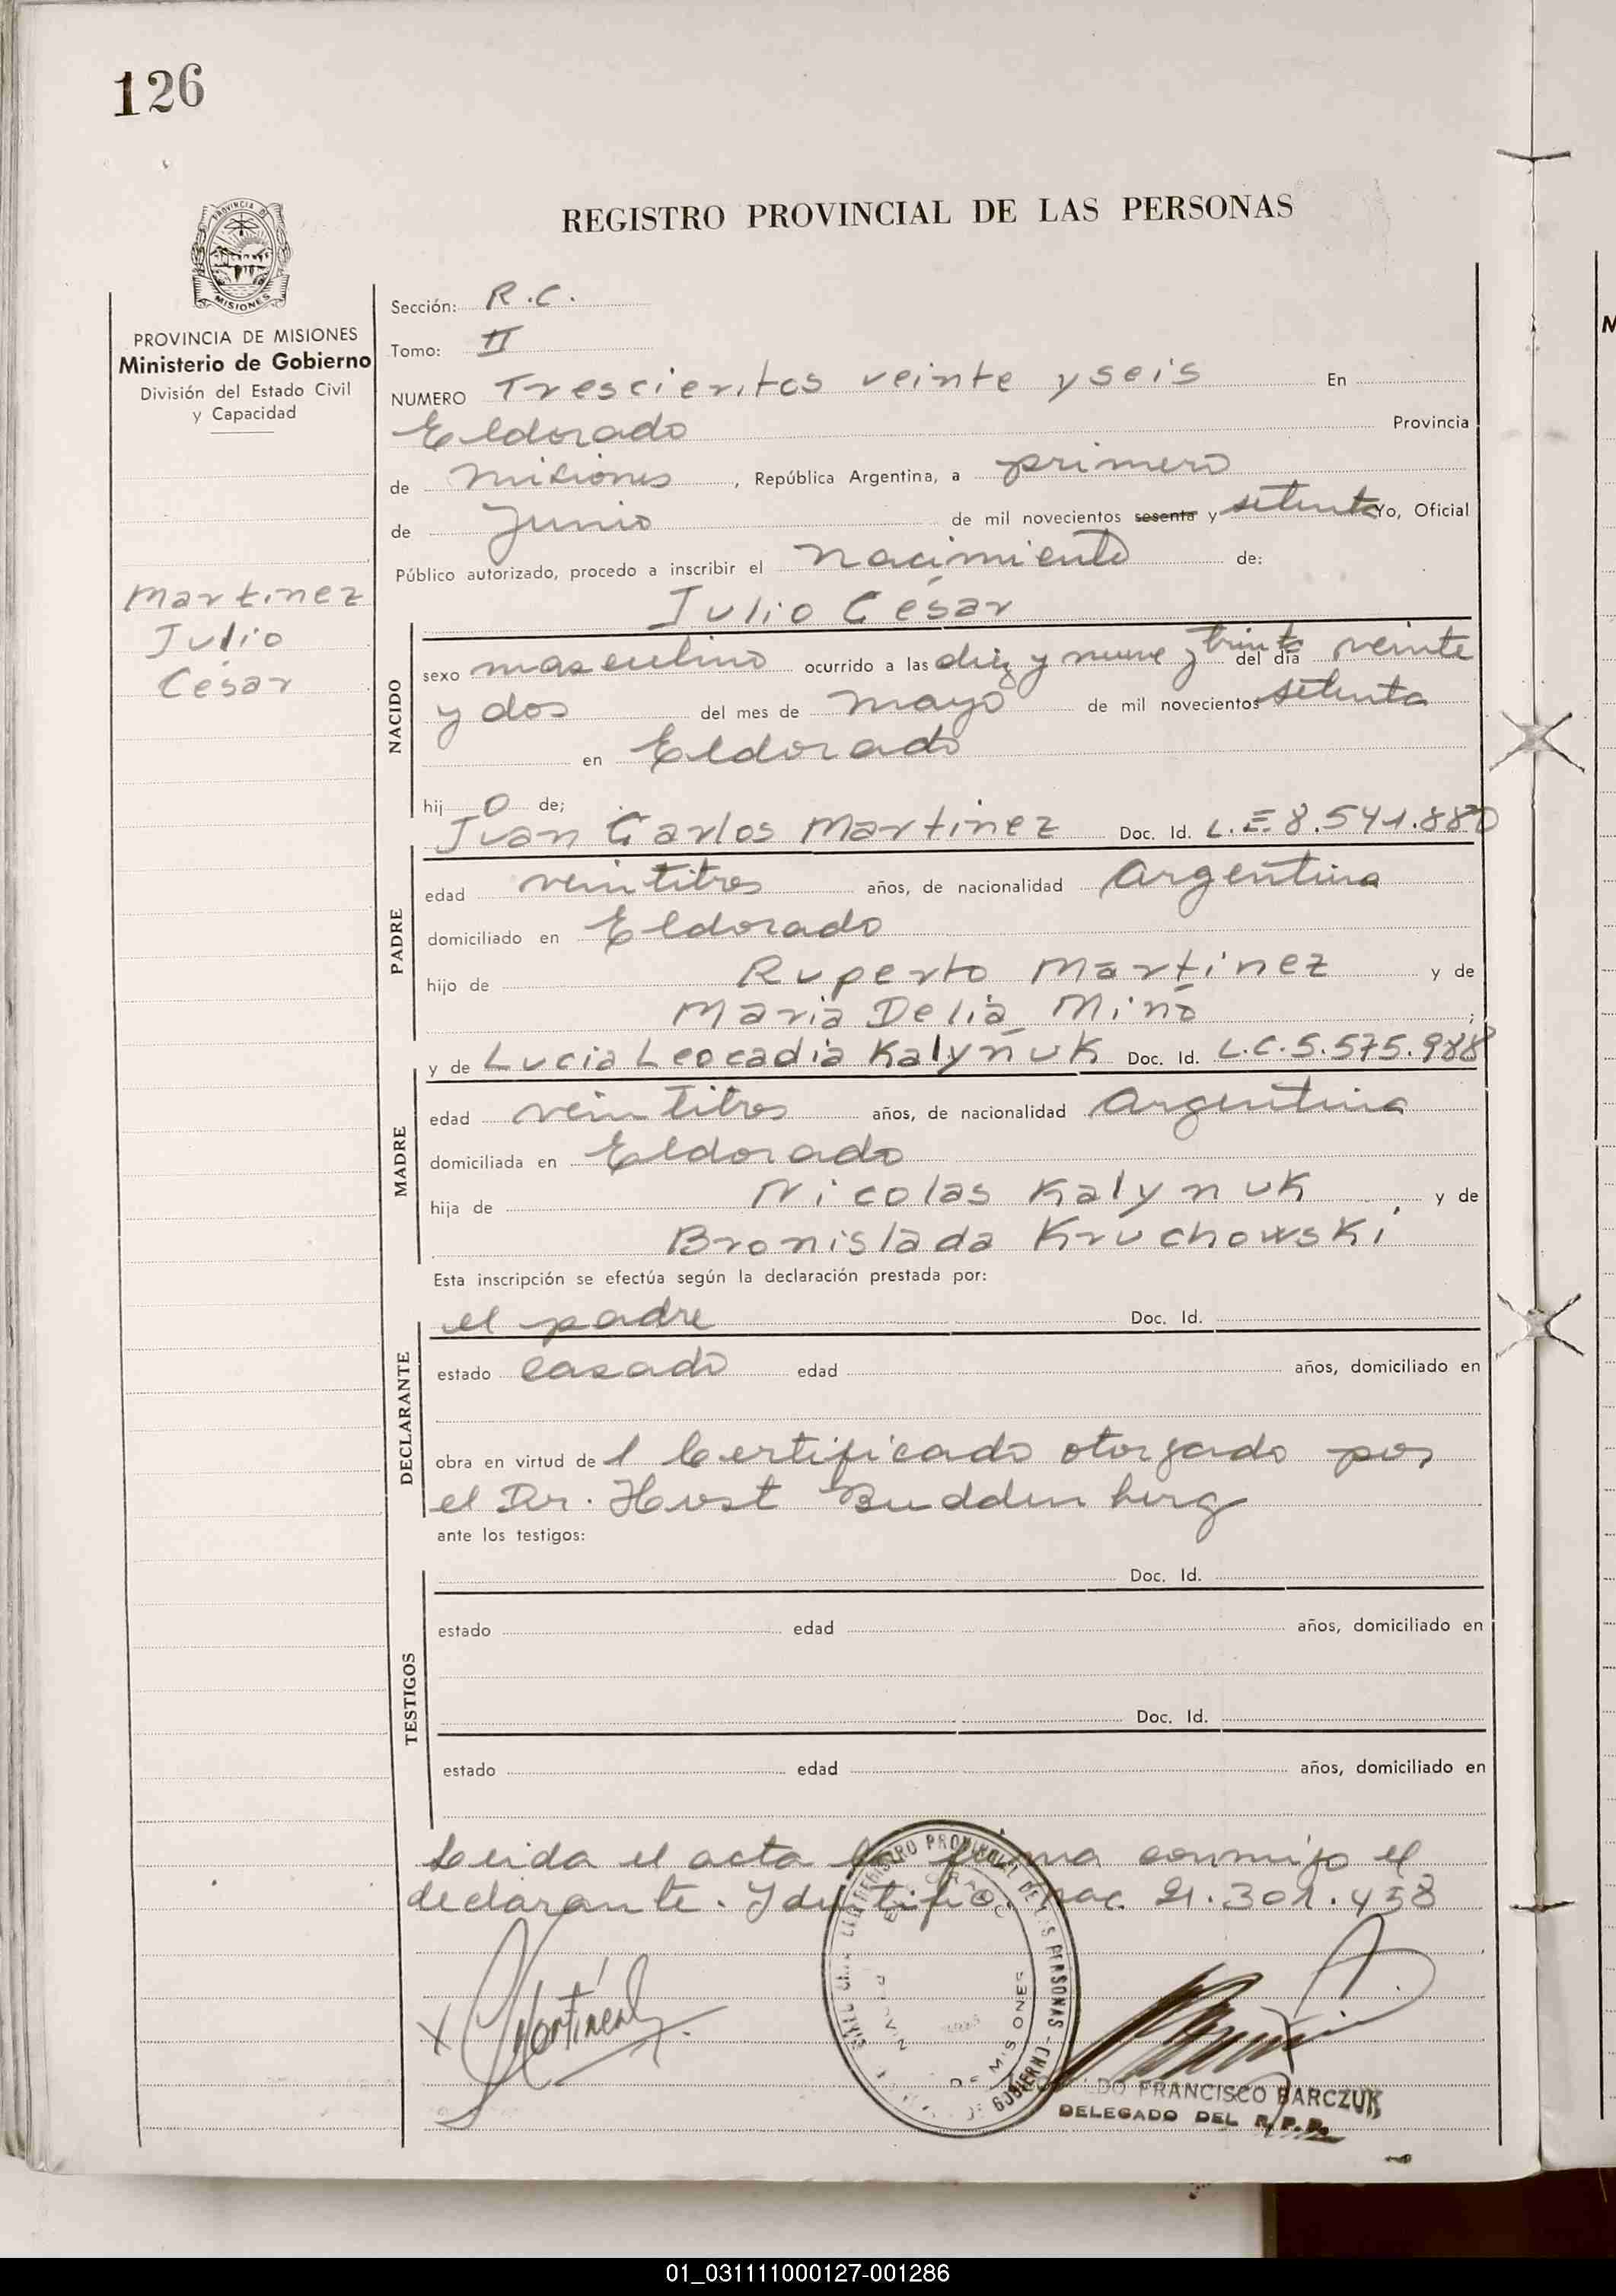 126
PROVINCIA DE
MISIONES
PROVINCIA DE MISIONES
Ministerio de Gobierno
División del Estado Civil
y Capacidad
Martinez
Julio
César
REGISTRO PROVINCIAL DE LAS PERSONAS
Sección: R.C.
Tomo: II
NUMERO Trescientos veinte y seis En
Eldorado Provincia
de Misiones, República Argentina, a primero
de Junio de mil novecientos sesenta y setenta Yo, Oficial
Público autorizado, procedo a inscribir el nacimiento de:
Julio César
NACIDO
sexo masculino ocurrido a las diez y nueve y treinta del día veinte
y dos del mes de mayo de mil novecientos setenta
en Eldorado
hij o de;
Juan Carlos Martinez Doc. Id. L.E. 8.541.880
PADRE
edad veintitres años, de nacionalidad Argentina
domiciliado en Eldorado
hijo de Ruperto Martinez y de
Maria Delia Miño;
y de Lucia Leocadia Kalyñuk Doc. Id. L.C. 5.575.988
MADRE
edad veintitres años, de nacionalidad Argentina
domiciliada en Eldorado
hija de Nicolas Kalynuk y de
Bronislada Kruchowski
Esta inscripción se efectúa según la declaración prestada por:
el padre Doc. Id.
DECLARANTE
estado casado edad años, domiciliado en
obra en virtud de l Certificado otorgado por
el Dr. Horst Buddenberg
ante los testigos:
Doc. Id.
TESTIGOS
estado edad años, domiciliado en
Doc. Id.
estado edad años, domiciliado en
Leida el acta la firma conmigo el
declarante. Identific. nac. 21.301.458
REGISTRO PROVINCIAL DE LAS PERSONAS
GOBIERNO
DE MISIONES
Martinez
DO FRANCISCO BARCZUK
DELEGADO DEL R.P.P.
01_031111000127-001286